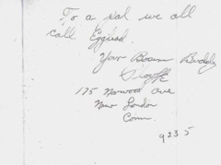 To a pal we all
call Egghead.
Your Bosom Buddy
175 Norwood Ave
New London
Conn.
9235